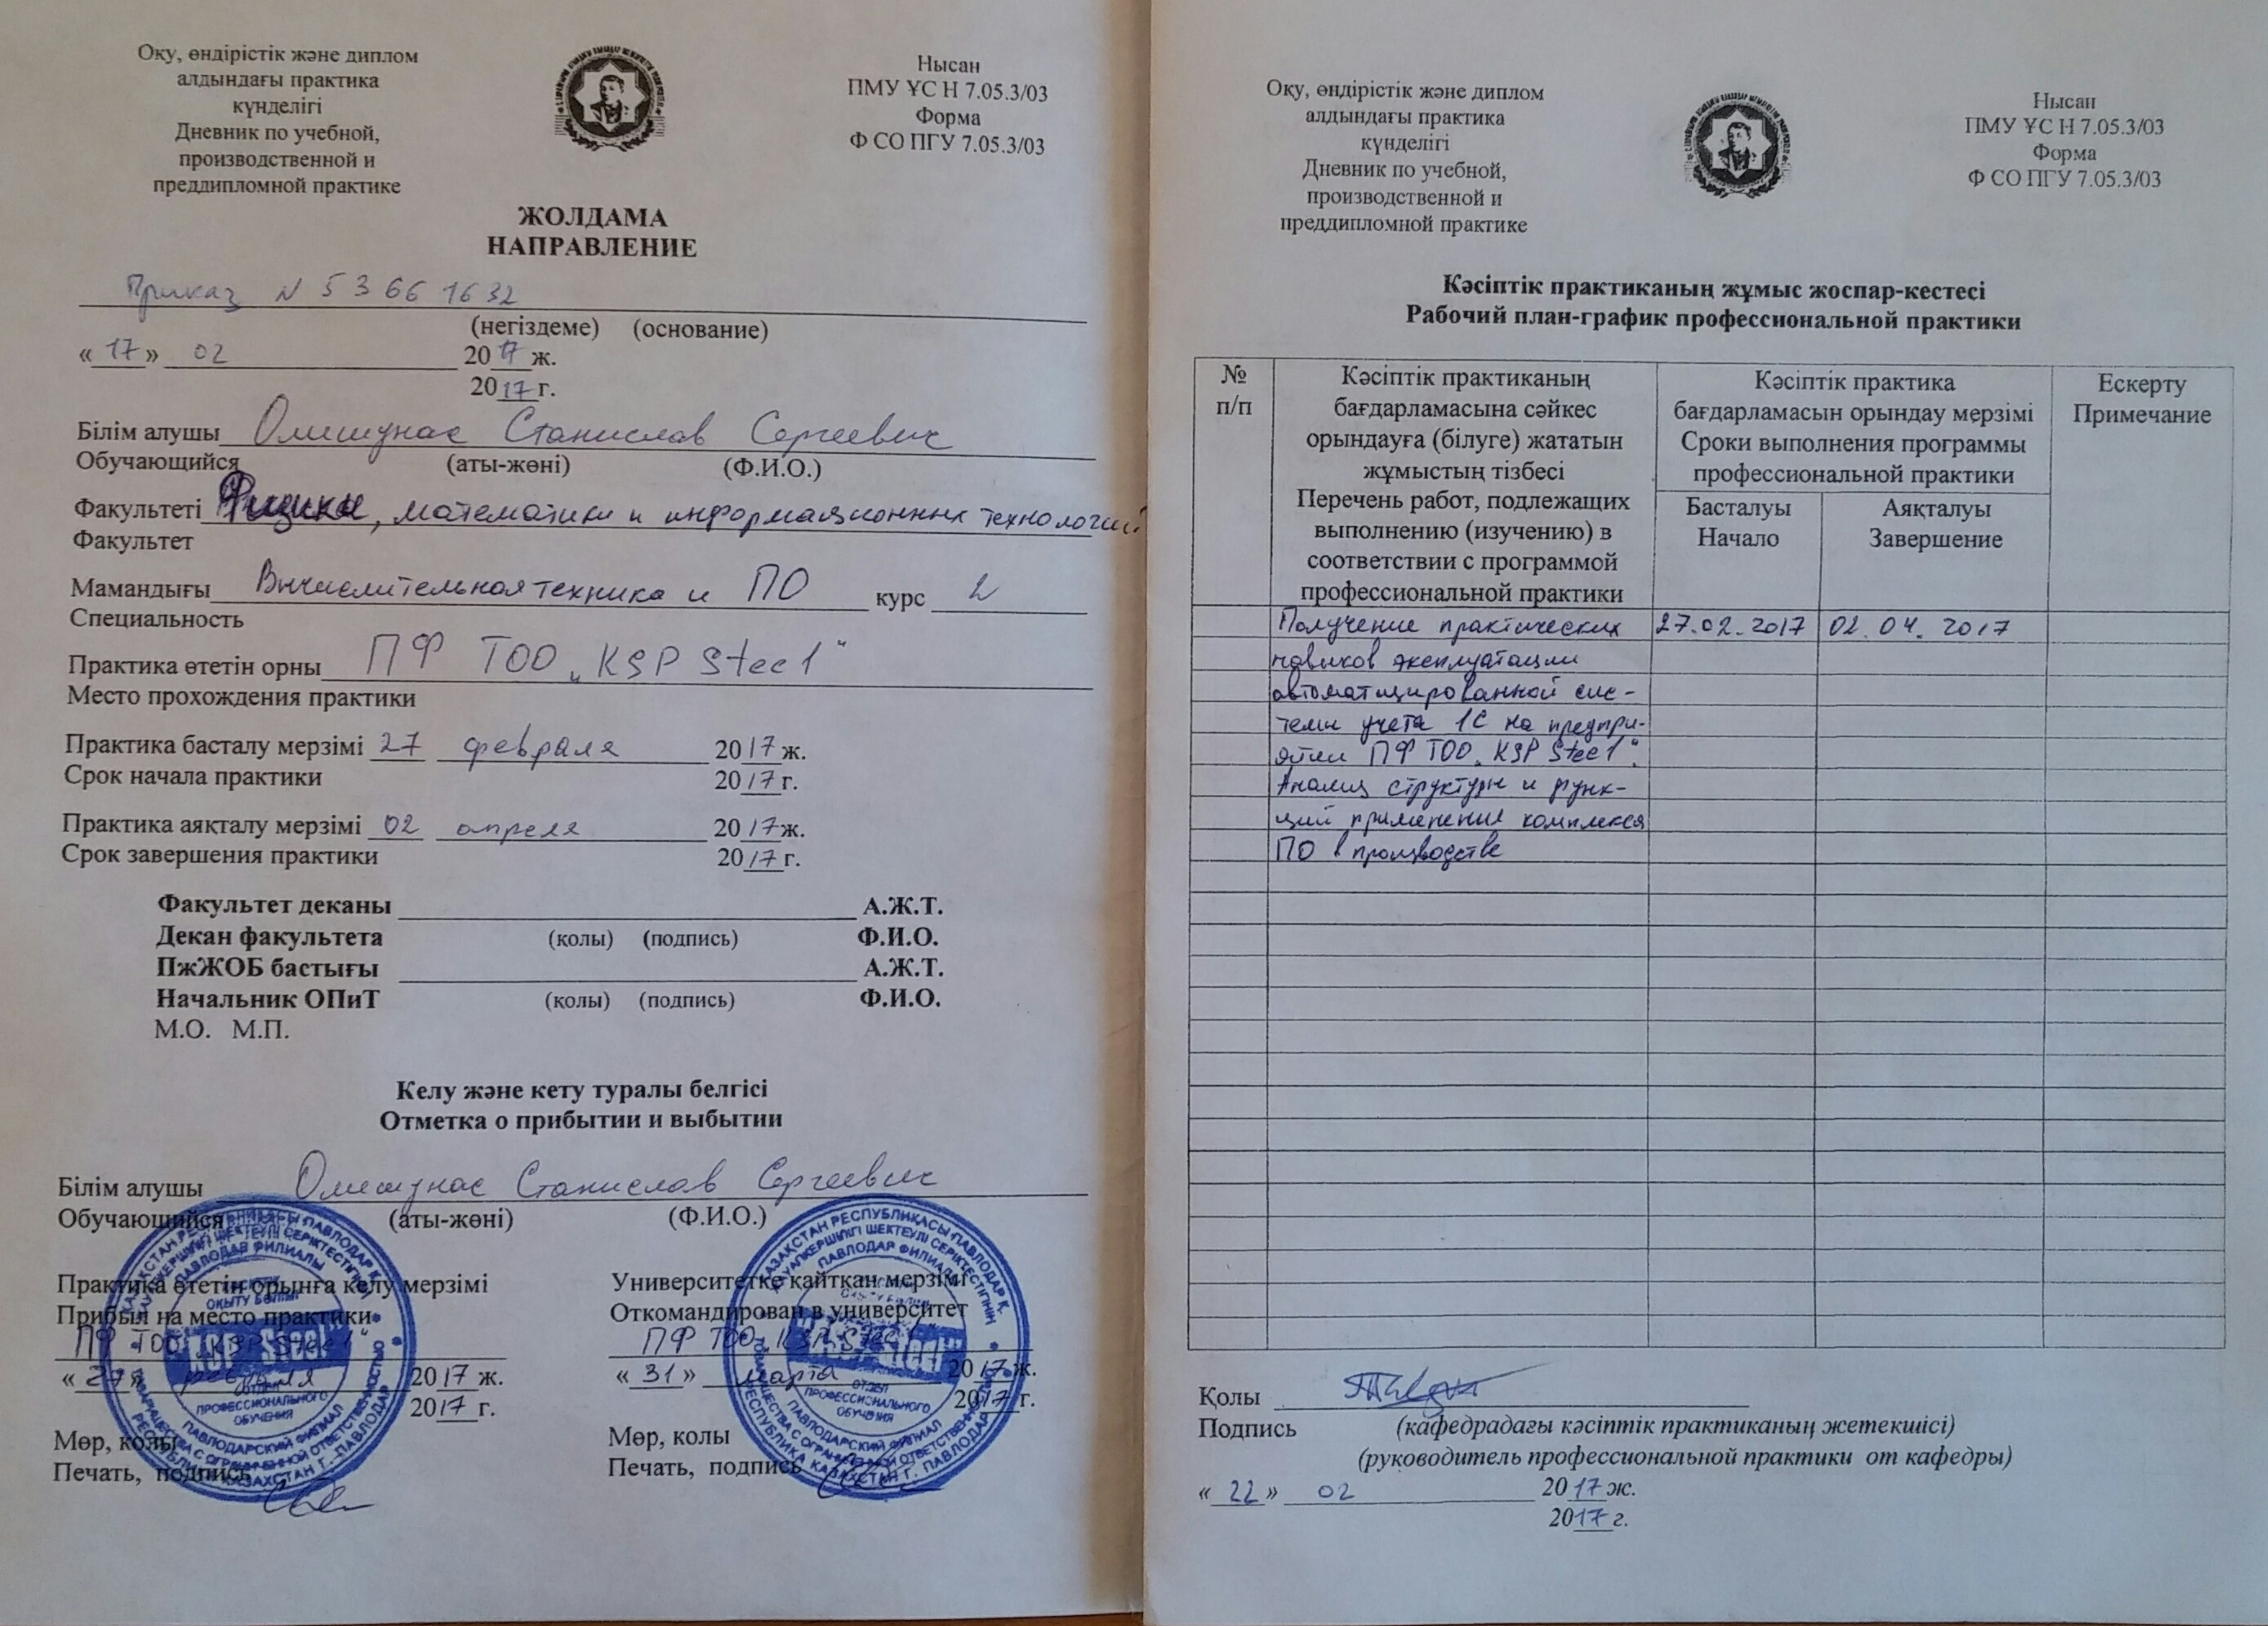 Оқу, өндірістік және диплом
алдындағы практика
күнделігі
Дневник по учебной,
производственной и
преддипломной практике
Нысан
ПМУ ҰС Н 7.05.3/03
Форма
Ф СО ПГУ 7.05.3/03
ЖОЛДАМА
НАПРАВЛЕНИЕ
Приказ N 5 3 66 1632
(негіздеме) (основание)
«17» 02 2017 ж.
2017 г.
Білім алушы Олишунас Станислав Сергеевич
Обучающийся (аты-жөні) (Ф.И.О.)
Факультеті Физики, математики и информационных технологий
Факультет
Мамандығы Вычислительная техника и ПО курс 2
Специальность
Практика өтетін орны ПФ ТОО „KSP Steel"
Место прохождения практики
Практика басталу мерзімі 27 февраля 2017 ж.
Срок начала практики 2017 г.
Практика аяқталу мерзімі 02 апреля 2017 ж.
Срок завершения практики 2017 г.
Факультет деканы А.Ж.Т.
Декан факультета (қолы) (подпись) Ф.И.О.
ПжЖОБ бастығы А.Ж.Т.
Начальник ОПиТ (қолы) (подпись) Ф.И.О.
М.О. М.П.
Келу және кету туралы белгісі
Отметка о прибытии и выбытии
Білім алушы Олишунас Станислав Сергеевич
Обучающийся (аты-жөні) (Ф.И.О.)
Практика өтетін орынға келу мерзімі
Прибыл на место практики
ПФ ТОО „KSP Steel"
«27» февраля 2017 ж.
2017 г.
Мөр, қолы
Печать, подпись
Университетке қайтқан мерзімі
Откомандирован в университет
ПФ ТОО „KSP Steel"
«31» марта 2017 ж.
2017 г.
Мөр, қолы
Печать, подпись
ҚАЗАҚСТАН РЕСПУБЛИКАСЫ ПАВЛОДАР Қ.
ПАВЛОДАР ФИЛИАЛЫ
ОТДЕЛ
ПРОФЕССИОНАЛЬНОГО
ОБУЧЕНИЯ
ПАВЛОДАРСКИЙ ФИЛИАЛ
РЕСПУБЛИКА КАЗАХСТАН Г. ПАВЛОДАР
Оқу, өндірістік және диплом
алдындағы практика
күнделігі
Дневник по учебной,
производственной и
преддипломной практике
Нысан
ПМУ ҰС Н 7.05.3/03
Форма
Ф СО ПГУ 7.05.3/03
Кәсіптік практиканың жұмыс жоспар-кестесі
Рабочий план-график профессиональной практики
№
п/п
Кәсіптік практиканың
бағдарламасына сәйкес
орындауға (білуге) жататын
жұмыстың тізбесі
Перечень работ, подлежащих
выполнению (изучению) в
соответствии с программой
профессиональной практики
Кәсіптік практика
бағдарламасын орындау мерзімі
Сроки выполнения программы
профессиональной практики
Басталуы
Начало
Аяқталуы
Завершение
Ескерту
Примечание
Получение практических 27.02.2017 02.04.2017
навыков эксплуатации
автоматизированной сис-
темы учета 1С на предпри-
ятии ПФ ТОО „KSP Steel".
Анализ структуры и функ-
ций применения комплекса
ПО в производстве
Қолы
Подпись (кафедрадағы кәсіптік практиканың жетекшісі)
(руководитель профессиональной практики от кафедры)
«22» 02 2017 ж.
2017 г.